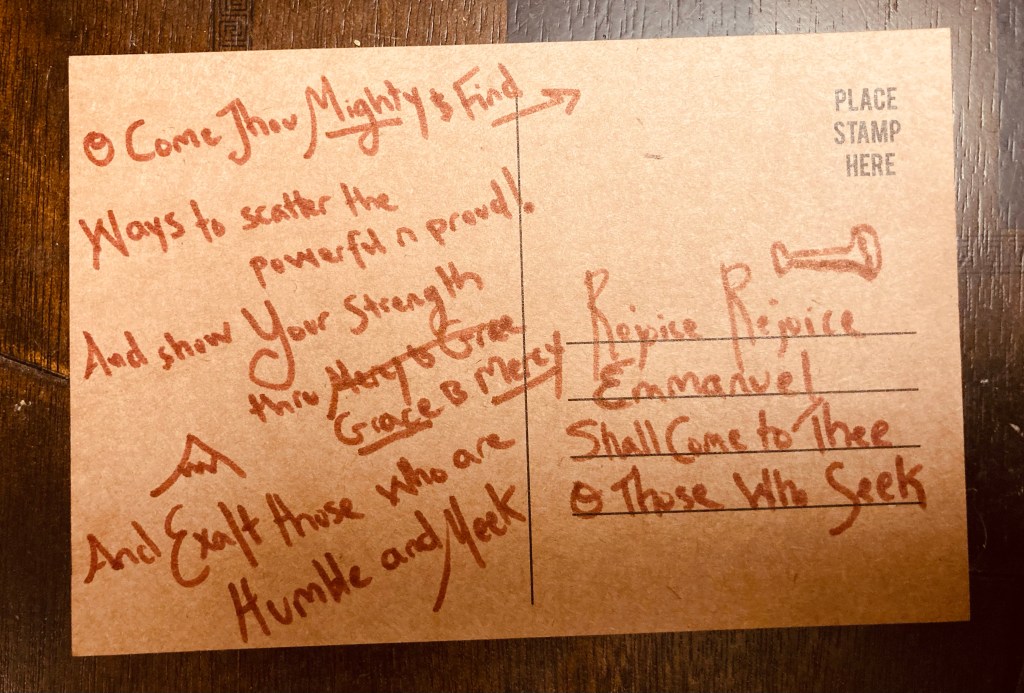 O Come Thou Mighty & Find →
Ways to scatter the
powerful n proud!
And show Your Strength
thru Mercy & Grace
Grace & Mercy
And Exalt those who are
Humble and Meek
PLACE
STAMP
HERE
Rejoice Rejoice
Emmanuel
Shall Come to Thee
O Those Who Seek